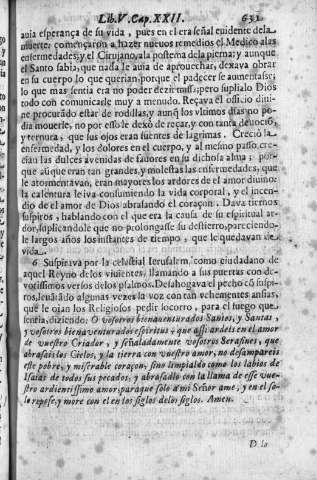 Lib. V. Cap. XXII. 631
auia esperança de su vida, pues en el era señal euidente de la
muerte: començaron a hazer nueuos remedios el Medico a las
enfermedades, y el Cirujano, a la postema de la pierna: y aunque
el Santo sabia, que nada le auia de aprouechar, dexava obrar
en su cuerpo lo que querian, porque el padecer se aumentase;
lo que mas sentia era no poder dezir missa; pero suplialo Dios
todo con comunicarle muy a menudo. Reçava el oficio diuino,
procurãdo estar de rodillas, y aunq̃ los vltimos dias no podia
mouerse, no por esso le dexò de reçar, y con tanta deuociõ,
y ternura; que sus ojos eran fuentes de lagrimas. Creciò la
enfermedad, y los dolores en el cuerpo, y al mesmo passo crecian
las dulces avenidas de fauores en su dichosa alma; porque
aũque eran tan grandes, y molestas las enfermedades, que
le atormentavan, eran mayores los ardores de el amor diuino:
la calentura le iva consumiendo la vida corporal, y el incendio
de el amor de Dios abrasando el coraçon. Dava tiernos
suspiros, hablando con el que era la causa de su espiritual ardor,
suplicandole que no prolongasse su destierro, pareciendole
largos años los instantes de tiempo, que le quedavan de
vida.
6. Suspirava por la celestial Ierusalem, como ciudadano de
aquel Reyno de los viuientes, llamando a sus puertas con devotissimos
versos de los psalmos. Desahogava el pecho cõ suspiros,
leuãtãdo algunas vezes la voz con tan vehementes ansias,
que le oian los Religiosos pedir socorro, para el fuego que
sentia, diziendo: O vosotros bienauenturados Santos, y Santas,
y vosotros bienauenturados espiritus, que assi ardeis en el amor
de vuestro Criador, y señaladamente vosotros Serafines, que
abrasais los Cielos, y la tierra con vuestro amor, no desampareis
este pobre, y miserable coraçon, sino limpialdo como los labios de
Isaias de todos sus pecados, y abrasadlo con la llama de esse vuestro
ardientissimo amor, paraque solo a mi Señor ame, y en el solo
repose, y more con el en los siglos de los siglos. Amen.
D. lo